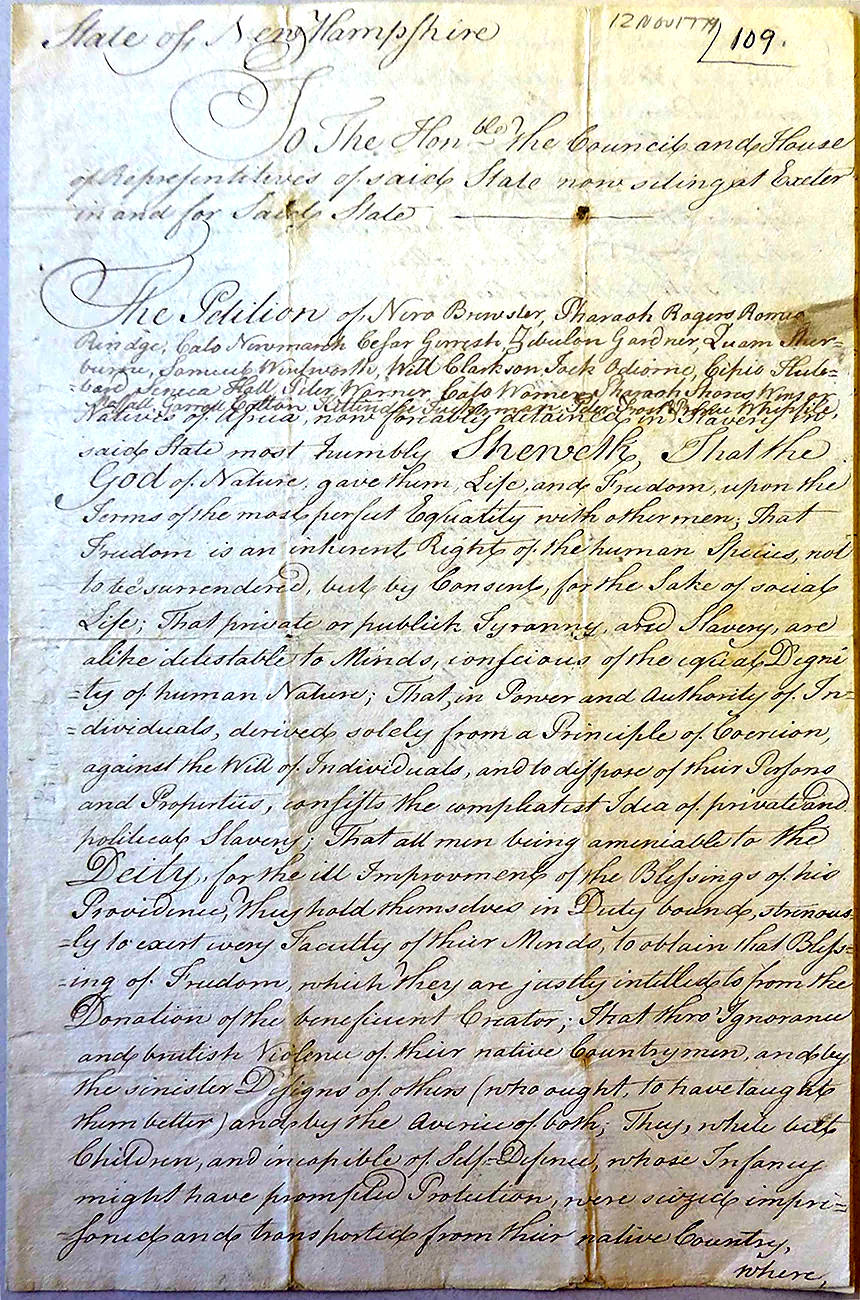 State of New Hampshire
12 NOV 1779
109.
To The Honble. the Council and House
of Representitives of said State now siting at Exeter
in and for Said State
The Petition of Nero Brewster, Pharaoh Rogers Romeo
Rindge, Cato Newmarch Cesar Gerrish Zebulon Gardner, Quam Sher-
burne, Samuel Wentworth, Will Clarkson, Jack Odiorne, Cipio Hub-
=bard Seneca Hall, Peter Warner, Cato Warner, Pharaoh Shores Winsor
Moffatt Garrott Cotton Kittindge Tuckerman Peter Frost Prince Whipple,
Natives of Africa, now forceably detained in Slavery in
said State most humbly Sheweth, That the
God of Nature, gave them, Life, and Freedom, upon the
Terms of the most perfect Equality with other men; That
Freedom is an inherent Right of the human Species, not
to be surrendered, but by Consent, for the Sake of social
Life; That private or publick Tyranny, and Slavery, are
alike detestable to Minds, conscious of the equal Digni
=ty of human Nature; That, in Power and Authority of In=
=dividuals, derived solely from a Principle of Coercion,
against the Will of Individuals, and to dispose of their Persons
and Properties, consists the compleatest Idea of private and
political Slavery; That all men being ameniable to the
Deity, for the ill Improvment of the Blessings of his
Providence, They hold themselves in Duty bound, strenous
=ly to exert every Faculty of their Minds, to obtain that Bless=
=ing of Freedom, which they are justly intitled to from the
Donation of the beneficent Creator; That thro' Ignorance
and brutish Violence of their native Countrymen, and by
the sinister Designs of others (who ought, to have taught
them better) and by the Avarice of both; They, while but
Children, and incapible of Self-Defence, whose Infancy
might have prompted Protection, were seized impri=
=soned and transported from their native Country,
where,